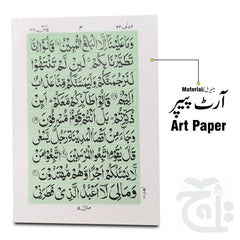 وَمَا عَلَيْنَآ اِلَّا الْبَلٰغُ الْمُبِيْنُ قَالُوْٓا اِنَّا
تَطَيَّرْنَا بِكُمْ لَئِنْ لَّمْ تَنْتَهُوْا
لَنَرْجُمَنَّكُمْ وَلَيَمَسَّنَّكُمْ مِّنَّا عَذَابٌ
اَلِيْمٌ قَالُوْا طَآئِرُكُمْ مَّعَكُمْ اَئِنْ
ذُكِّرْتُمْ بَلْ اَنْتُمْ قَوْمٌ مُّسْرِفُوْنَ
وَجَآءَ مِنْ اَقْصَا الْمَدِيْنَةِ رَجُلٌ يَّسْعٰى
قَالَ يٰقَوْمِ اتَّبِعُوا الْمُرْسَلِيْنَ اتَّبِعُوْا مَنْ
لَّا يَسْـَٔلُكُمْ اَجْرًا وَّهُمْ مُّهْتَدُوْنَ
وَمَا لِيَ لَآ اَعْبُدُ الَّذِيْ فَطَرَنِيْ
Material
آرٹ پیپر
Art Paper